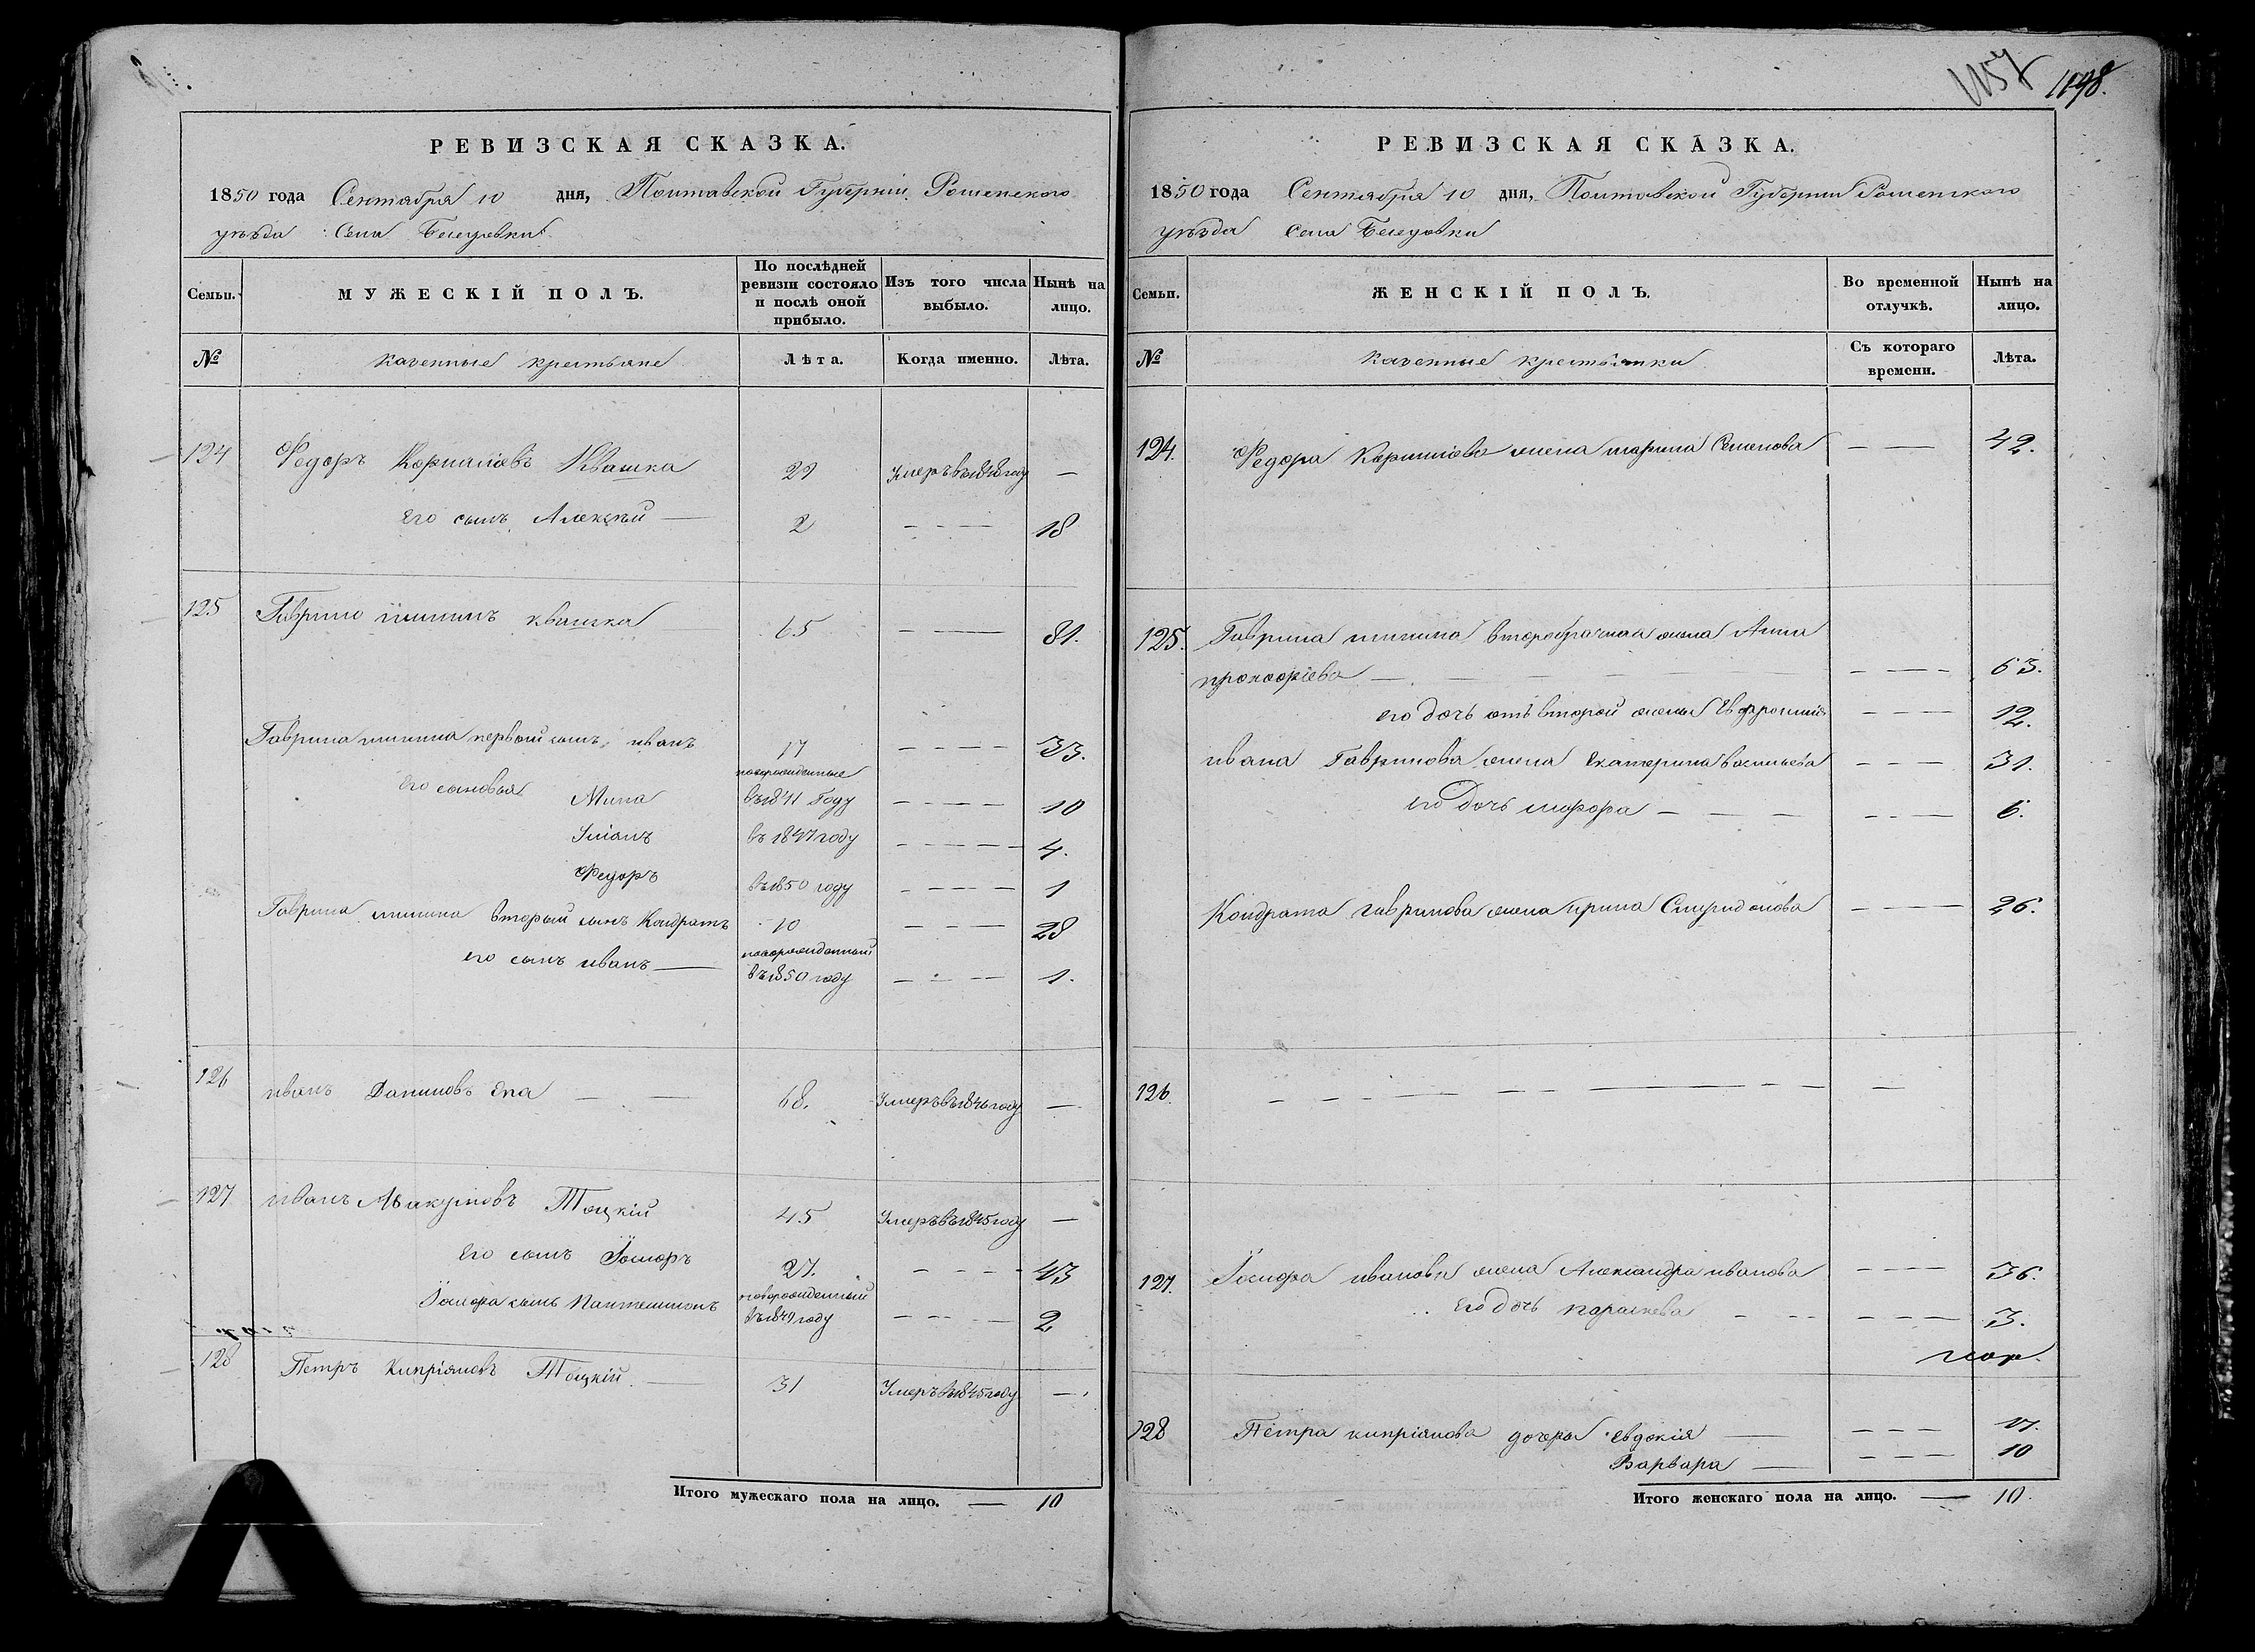 1157 1198.
РЕВИЗСКАЯ СКАЗКА.
1850 года Сентября 10 дня, Полтавской Губернии, Роменского
уѣзда Села Беседовки
Семьи. МУЖЕСКІЙ ПОЛЪ. По послѣдней ревизіи состояло и послѣ оной прибыло. Изъ того числа выбыло. Нынѣ на лицо.
№ Казенные крестьяне Лѣта. Когда именно. Лѣта.
124 Федоръ Корнилiевъ Квашка 22 Умеръ въ 1848 году —
Его сынъ Алексѣй — 2 — — — 18
125 Гаврило Мининъ Квашка 65 — — 81.
Гаврила Минина первый сынъ иванъ 17 — — — — 33.
новорожденные
Его сыновья Мина въ 1841 Году — — — — 10
Уліанъ въ 1847 году — — — — 4.
Федоръ въ 1850 году — — — — 1
Гаврила Минина вторый сынъ Кондратъ 10 — — — 28
новорожденный
его сынъ иванъ — въ 1850 году — — — 1.
126 иванъ Даниловъ Епа — — 68. Умеръ въ 1846 году —
127 иванъ Авакумовъ Тоцкій 45 Умеръ въ 1845 году —
Его сынъ Іосифъ 27. — — — 43
новорожденный
Іосифа сынъ Пантелимонъ въ 1849 году — — — 2
128 Петръ Кипріяновъ Тоцкій — 31 Умеръ въ 1845 году —.
Итого мужескаго пола на лицо. — 10
РЕВИЗСКАЯ СКАЗКА.
1850 года Сентября 10 дня, Полтавской Губернии Роменского
уѣзда Села Беседовки
Семьи. ЖЕНСКІЙ ПОЛЪ. Во временной отлучкѣ. Нынѣ на лицо.
№ Казенные крестьянки Съ котораго времени. Лѣта.
124. Федора Корнилiева жена Марина Семенова — — 42.
125. Гаврила Минина второбрачная жена Анна
Прокофіева — — — — — — — 63.
его дочь отъ второй жены Евфросинія — — — 12.
ивана Гаврилова жена Екатерина Васильева — — — 31.
его дочь — — — — — — 6.
Кондрата Гаврилова жена Ирина Спиридонова — — — 26.
126. — — — — — — — — — —
127. Іосифа иванова жена Александра иванова — — — 36.
Его дочь Параскева — — — — — — 3.
128 Петра Кипріянова дочери Евдокія — — — — 17.
Варвара — — — — 10
Итого женскаго пола на лицо. — 10.